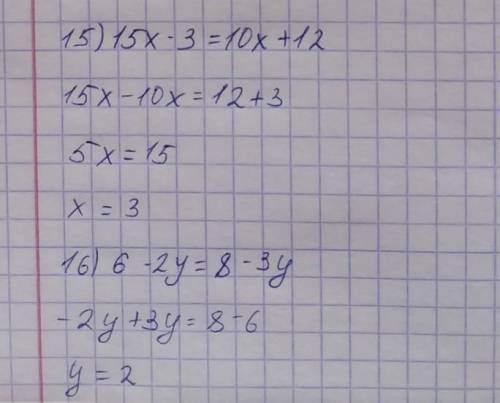 15) 15x - 3 = 10x + 12
15x - 10x = 12 + 3
5x = 15
x = 3
16) 6 - 2y = 8 - 3y
-2y + 3y = 8 - 6
y = 2